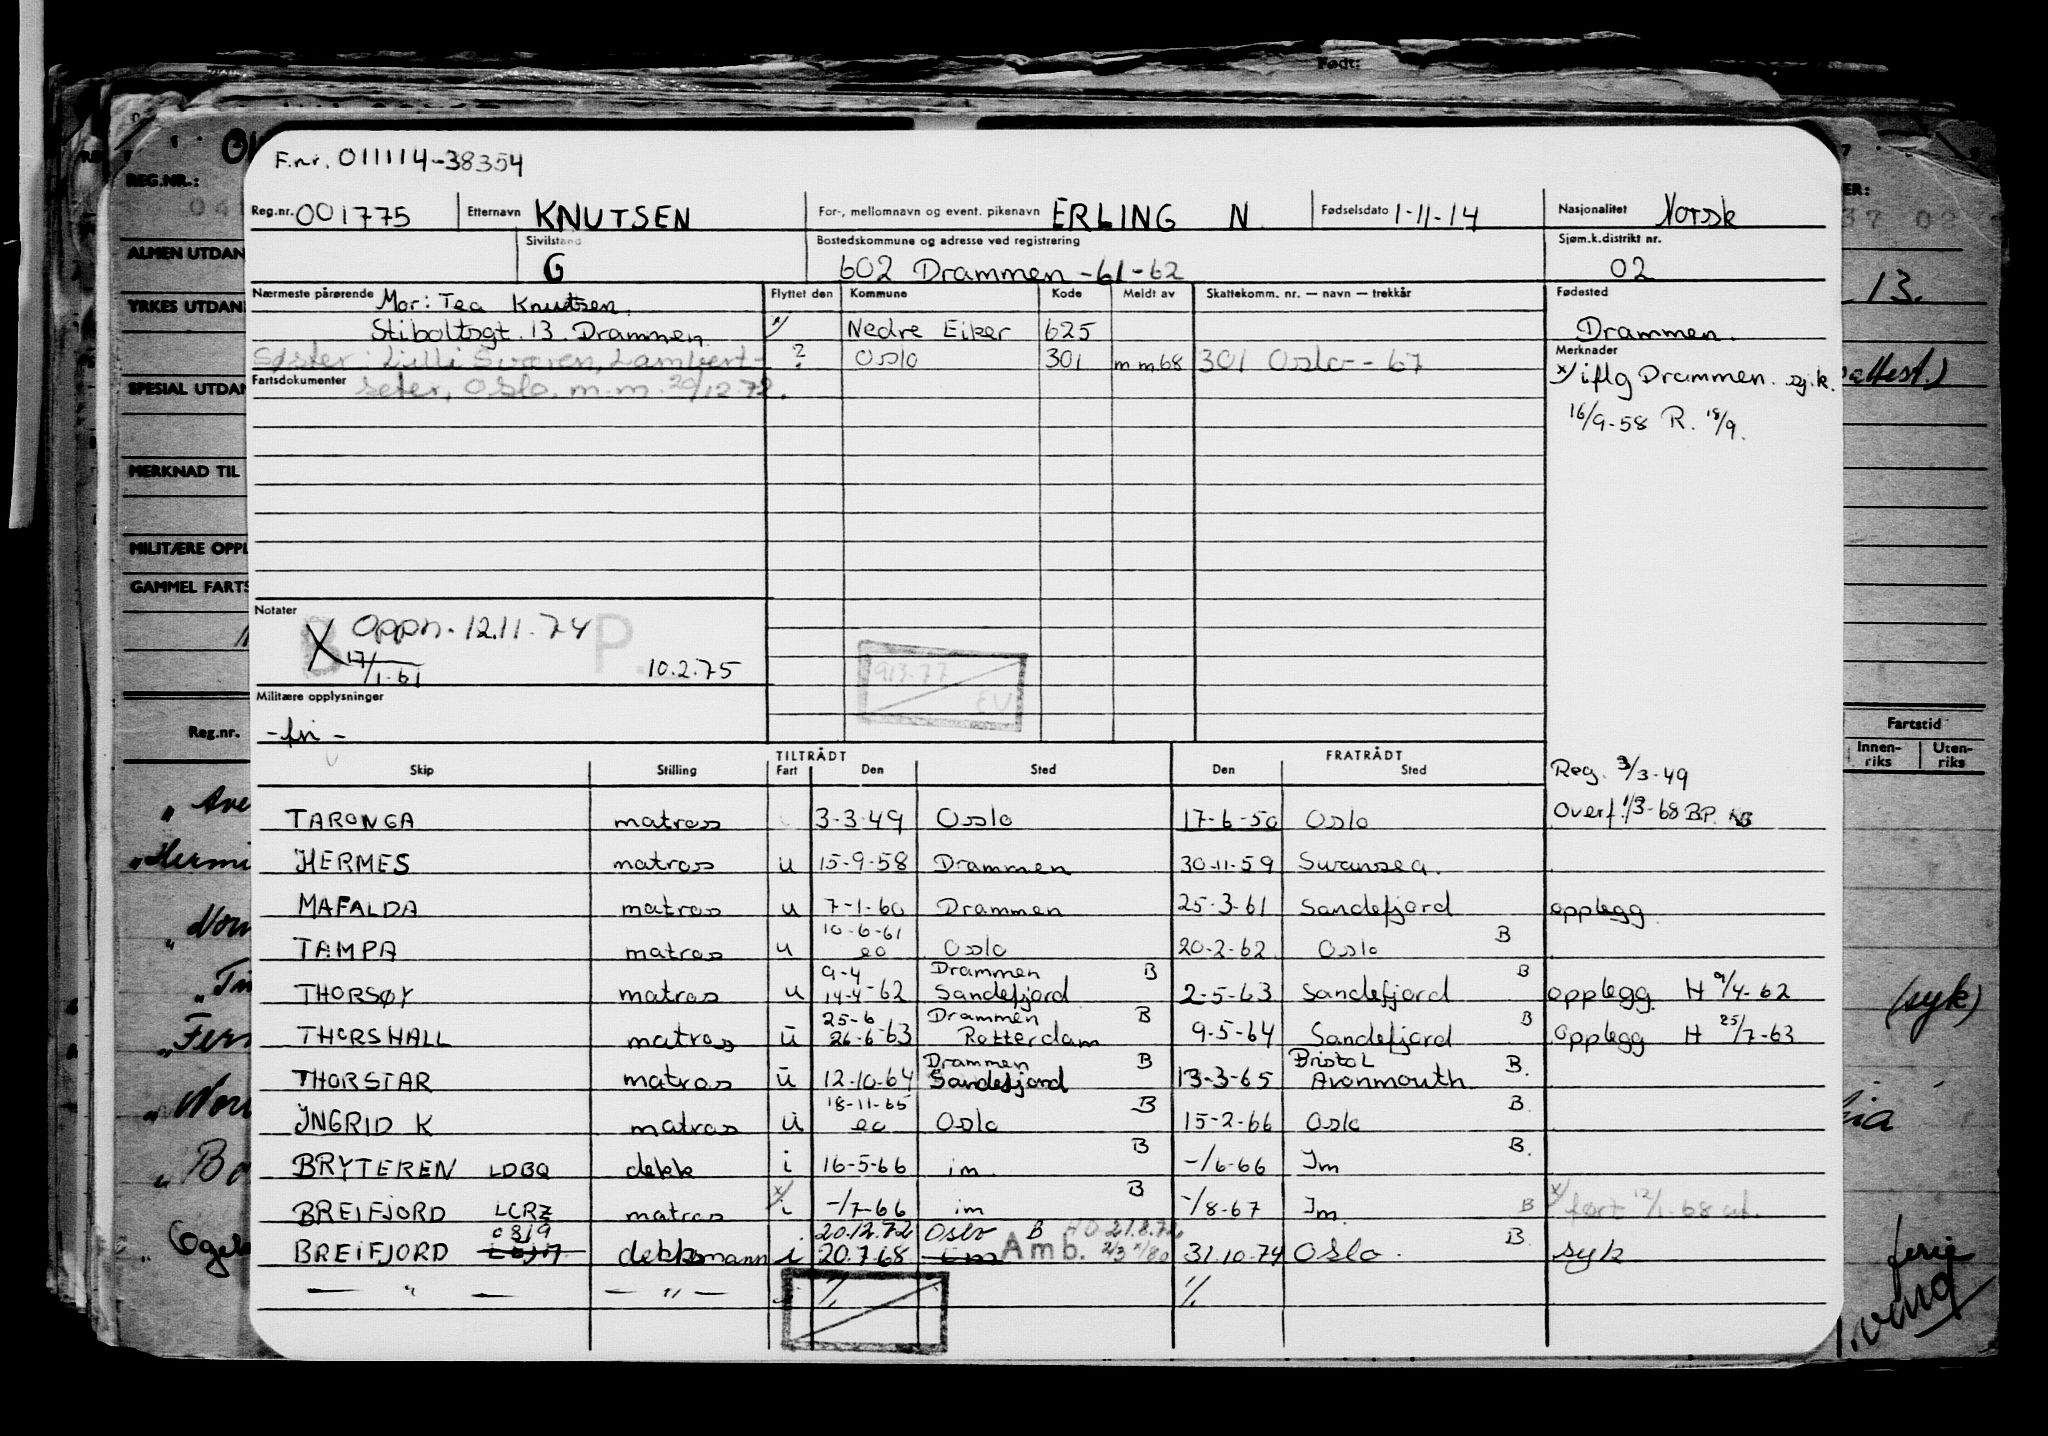 Født:
F.nr. 011114-38354
REG.NR.:
Reg.nr. 001775 Etternavn KNUTSEN For-, mellomnavn og event. pikenavn ERLING N. Fødselsdato 1-11-14 Nasjonalitet Norsk
ALMEN UTDAN
Sivilstand G Bostedskommune og adresse ved registrering 602 Drammen -61-62 Sjøm.k.distrikt nr. 02
YRKES UTDAN
Nærmeste pårørende Mor: Tea Knutsen. Flyttet den Kommune Kode Meldt av Skattekomm. nr. — navn — trekkår Fødested 13.
Stiboltsgt. 13. Drammen. x/ Nedre Eiker 625 Drammen.
Søster: Lilli Svaren, Lambert- ? Oslo 301 m m 68 301 Oslo - - 67 Merknader
SPESIAL UTDAN
Fartsdokumenter seter, Oslo. m.m. 20/12.72. x/ iflg Drammen. sj.k.
16/9-58 R. 18/9.
MERKNAD TIL
MILITÆRE OPPL
GAMMEL FARTS
Notater
X Oppn. 12.11.74 P.
17/1-61 10.2.75
913.77
EV
Militære opplysninger
-fri-
Reg.nr. Fartstid
Innen-riks Uten-riks
TILTRÅDT FRATRÅDT
Skip Stilling Fart Den Sted Den Sted Reg. 3/3-49
Overf. 1/3-68 B.P.
TARONGA matros 3-3-49 Oslo 17-6-50 Oslo
HERMES matros u 15-9-58 Drammen 30-11-59 Swansea.
MAFALDA matros u 7-1-60 Drammen 25-3-61 Sandefjord opplegg
10-6-61
TAMPA matros u eo Oslo 20-2-62 Oslo B
9-4 Drammen B B
THORSØY matros u 14-4-62 Sandefjord 2-5-63 Sandefjord opplegg H 9/4-62 (syk)
25-6 Drammen B B
THORSHALL matros u 26-6-63 Rotterdam 9-5-64 Sandefjord opplegg H 25/7-63
Drammen B Bristol B.
THORSTAR matros u 12-10-64 Sandefjord 13-3-65 Avonmouth
18-11-65 B B.
INGRID K matros u eo Oslo 15-2-66 Oslo
BRYTEREN LDBQ dekk i 16-5-66 im B -/6-66 Im B.
BREIFJORD LCRZ matros x/ i -/7-66 im B -/8-67 Im. B x/ ført 12/1-68
0819 20.12.72 Oslo B
BREIFJORD dekksmann i 20.7.68 Amb. 31.10.74 Oslo. B syk
— " — — " — ./. ./.
ferie